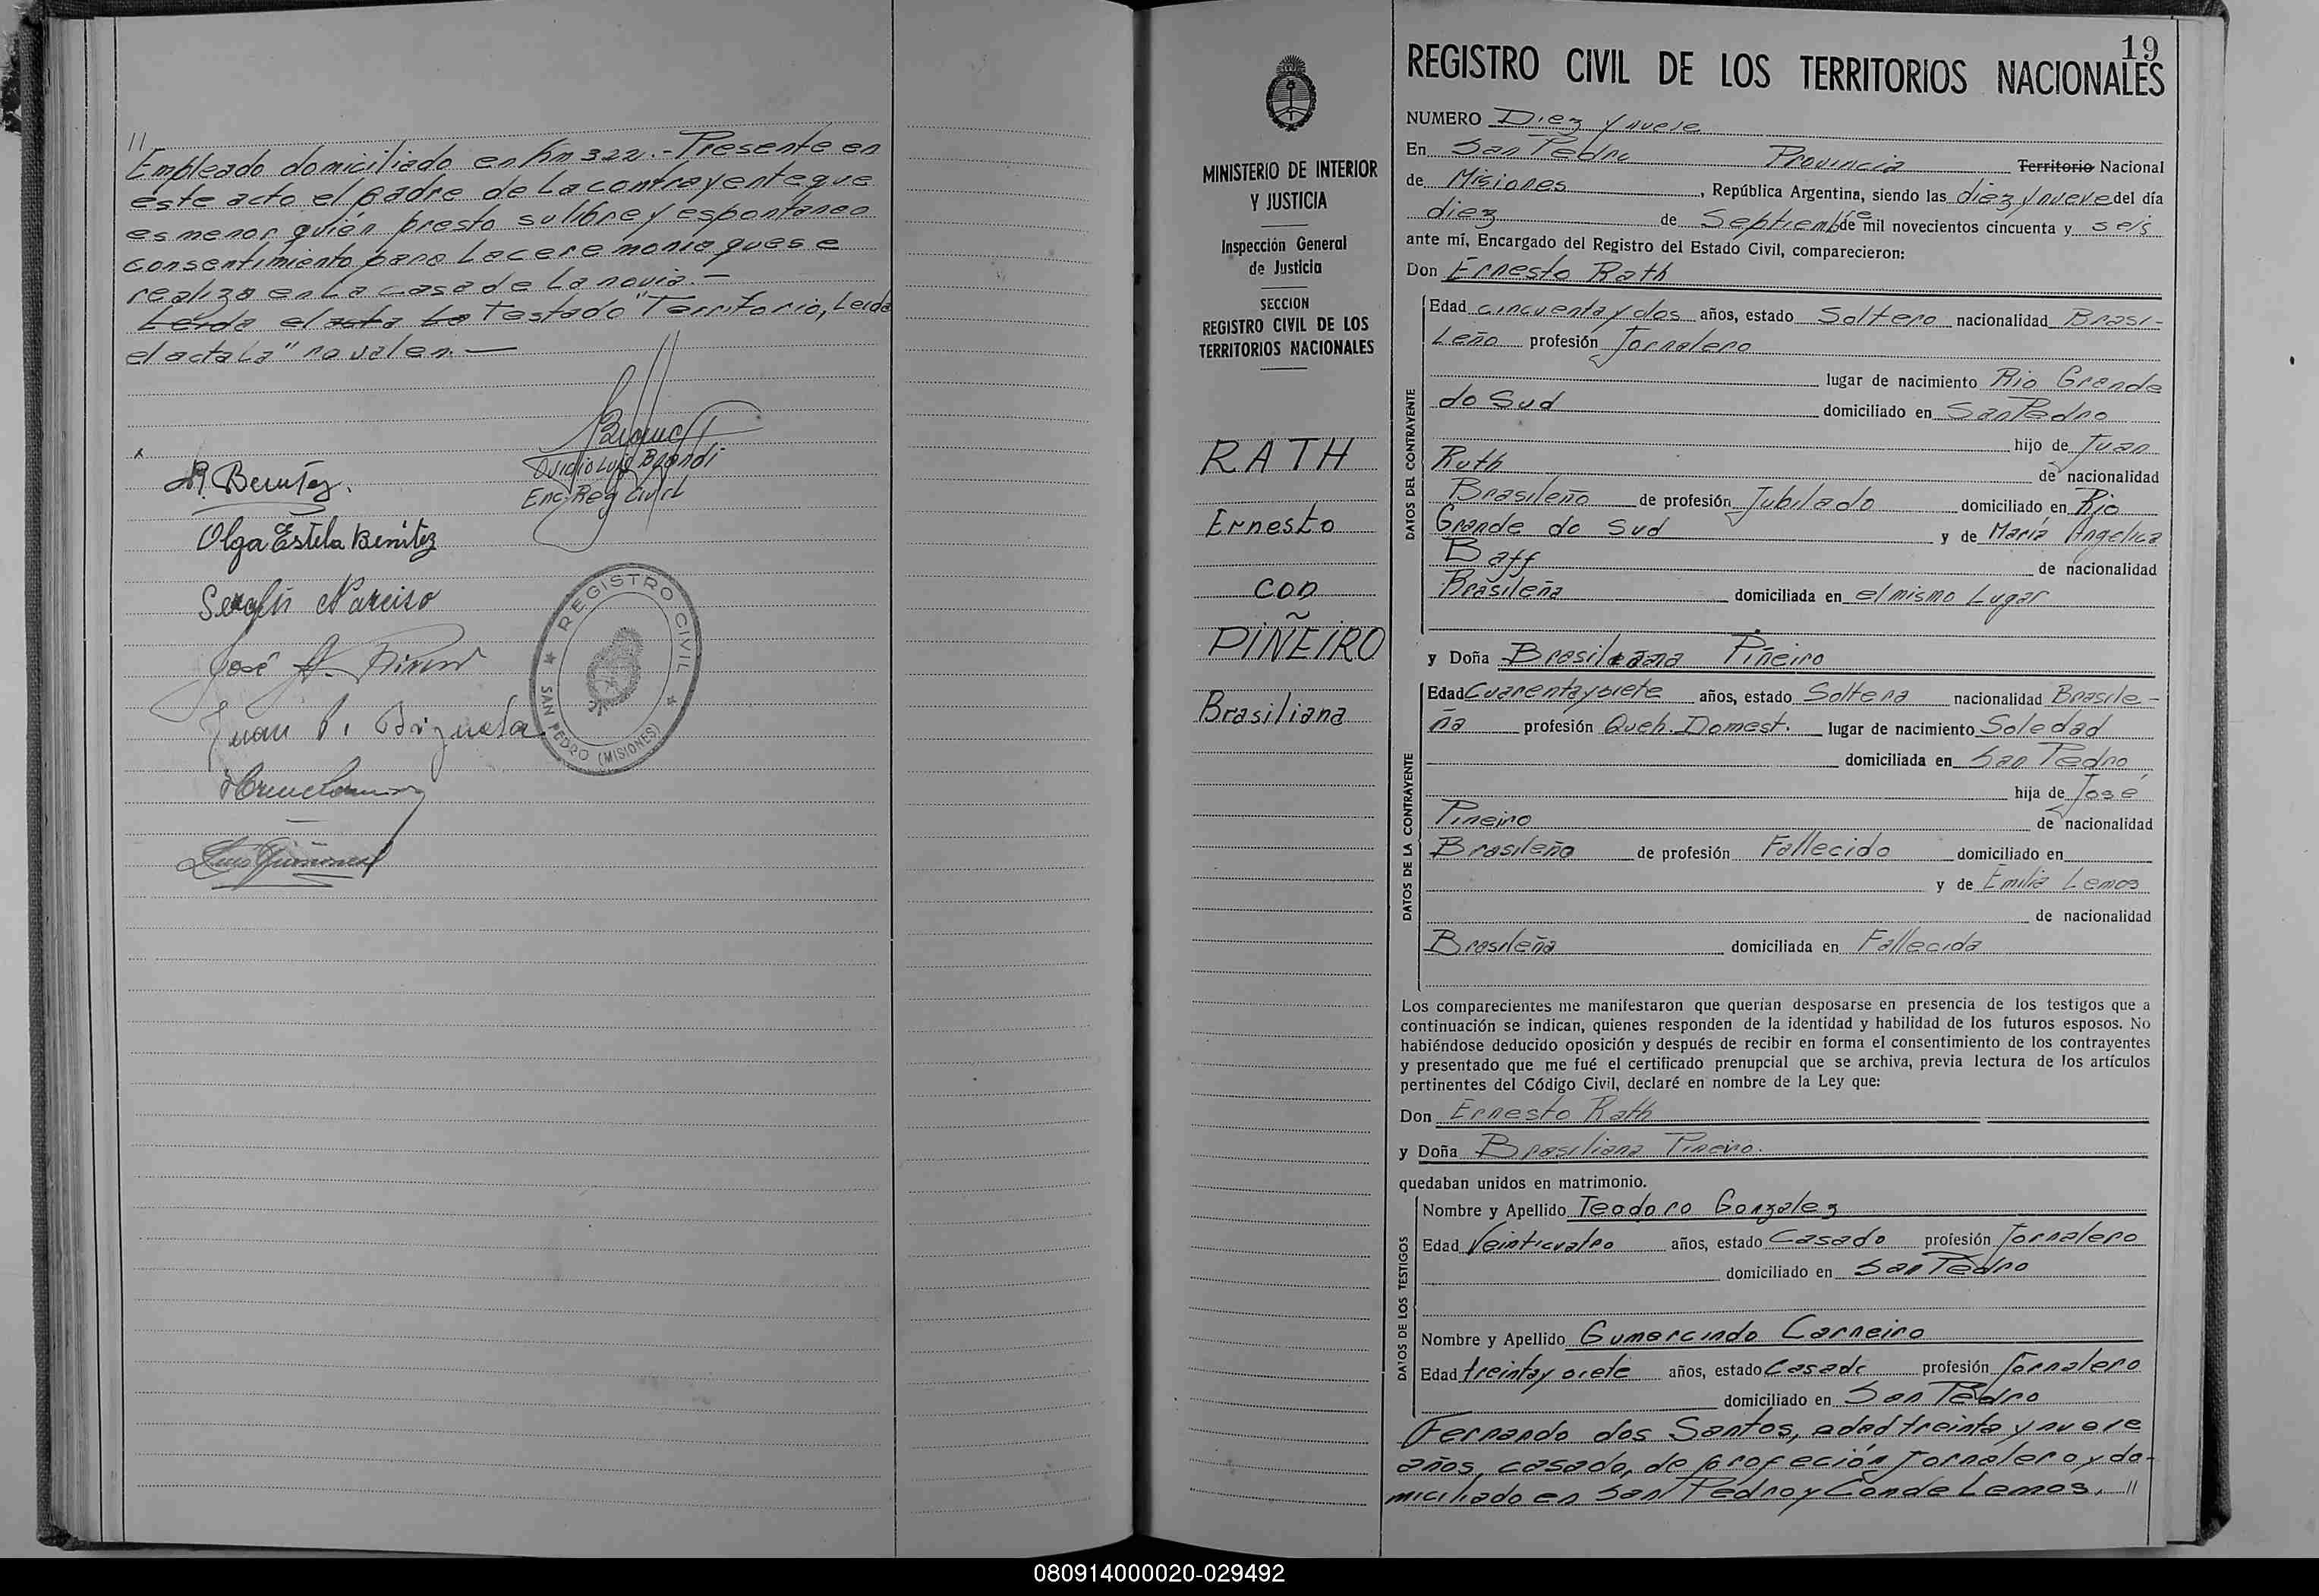 //
Empleado domiciliado en Km 322.- Presente en
este acto el padre de la contrayente que
es menor quién presto su libre y espontaneo
consentimiento para la ceremonia que se
realiza en la casa de la novia.-
Leida el acta La Testado "Territorio, Leida
el acta La" no valen.-
R. Benítez.
Ovidio Luis Brondi
Enc. Reg Civil
Olga Estela Benítez
Narciso
José A.
Juan
Luis Quiñones
REGISTRO CIVIL
SAN PEDRO (MISIONES)
19
MINISTERIO DE INTERIOR
Y JUSTICIA
Inspección General
de Justicia
SECCION
REGISTRO CIVIL DE LOS
TERRITORIOS NACIONALES
RATH
Ernesto
con
PIÑEIRO
Brasiliana
REGISTRO CIVIL DE LOS TERRITORIOS NACIONALES
NUMERO Diez y nueve
En San Pedro Provincia Territorio Nacional
de Misiones, República Argentina, siendo las diez y nueve del día
diez de Septiembre de mil novecientos cincuenta y seis
ante mí, Encargado del Registro del Estado Civil, comparecieron:
Don Ernesto Rath
DATOS DEL CONTRAYENTE
Edad cincuenta y dos años, estado Soltero nacionalidad Brasi-
Leño profesión Jornalero
lugar de nacimiento Rio Grande
do Sud domiciliado en San Pedro
hijo de Juan
Rath de nacionalidad
Brasileño de profesión Jubilado domiciliado en Rio
Grande do Sud y de María Angelica
Baff de nacionalidad
Brasileña domiciliada en el mismo Lugar
y Doña Brasiliana Piñeiro
DATOS DE LA CONTRAYENTE
Edad Cuarenta y siete años, estado Soltera nacionalidad Brasile-
ña profesión Queh. Domest. lugar de nacimiento Soledad
domiciliada en San Pedro
hija de José
Pineiro de nacionalidad
Brasileño de profesión Fallecido domiciliado en
y de Emilia Lemos
de nacionalidad
Brasileña domiciliada en Fallecida
Los comparecientes me manifestaron que querían desposarse en presencia de los testigos que a
continuación se indican, quienes responden de la identidad y habilidad de los futuros esposos. No
habiéndose deducido oposición y después de recibir en forma el consentimiento de los contrayentes
y presentado que me fué el certificado prenupcial que se archiva, previa lectura de los artículos
pertinentes del Código Civil, declaré en nombre de la Ley que:
Don Ernesto Rath
y Doña Brasiliana Pineiro.
quedaban unidos en matrimonio.
DATOS DE LOS TESTIGOS
Nombre y Apellido Teodoro Gonzalez
Edad Veinticuatro años, estado Casado profesión Jornalero
domiciliado en San Pedro
Nombre y Apellido Gumercindo Carneiro
Edad treinta y siete años, estado Casado profesión Jornalero
domiciliado en San Pedro
Fernando dos Santos, edad treinta y nueve
años, casado, de profeción Jornalero y do-
miciliado en San Pedro y Conde Lemos. //
080914000020-029492